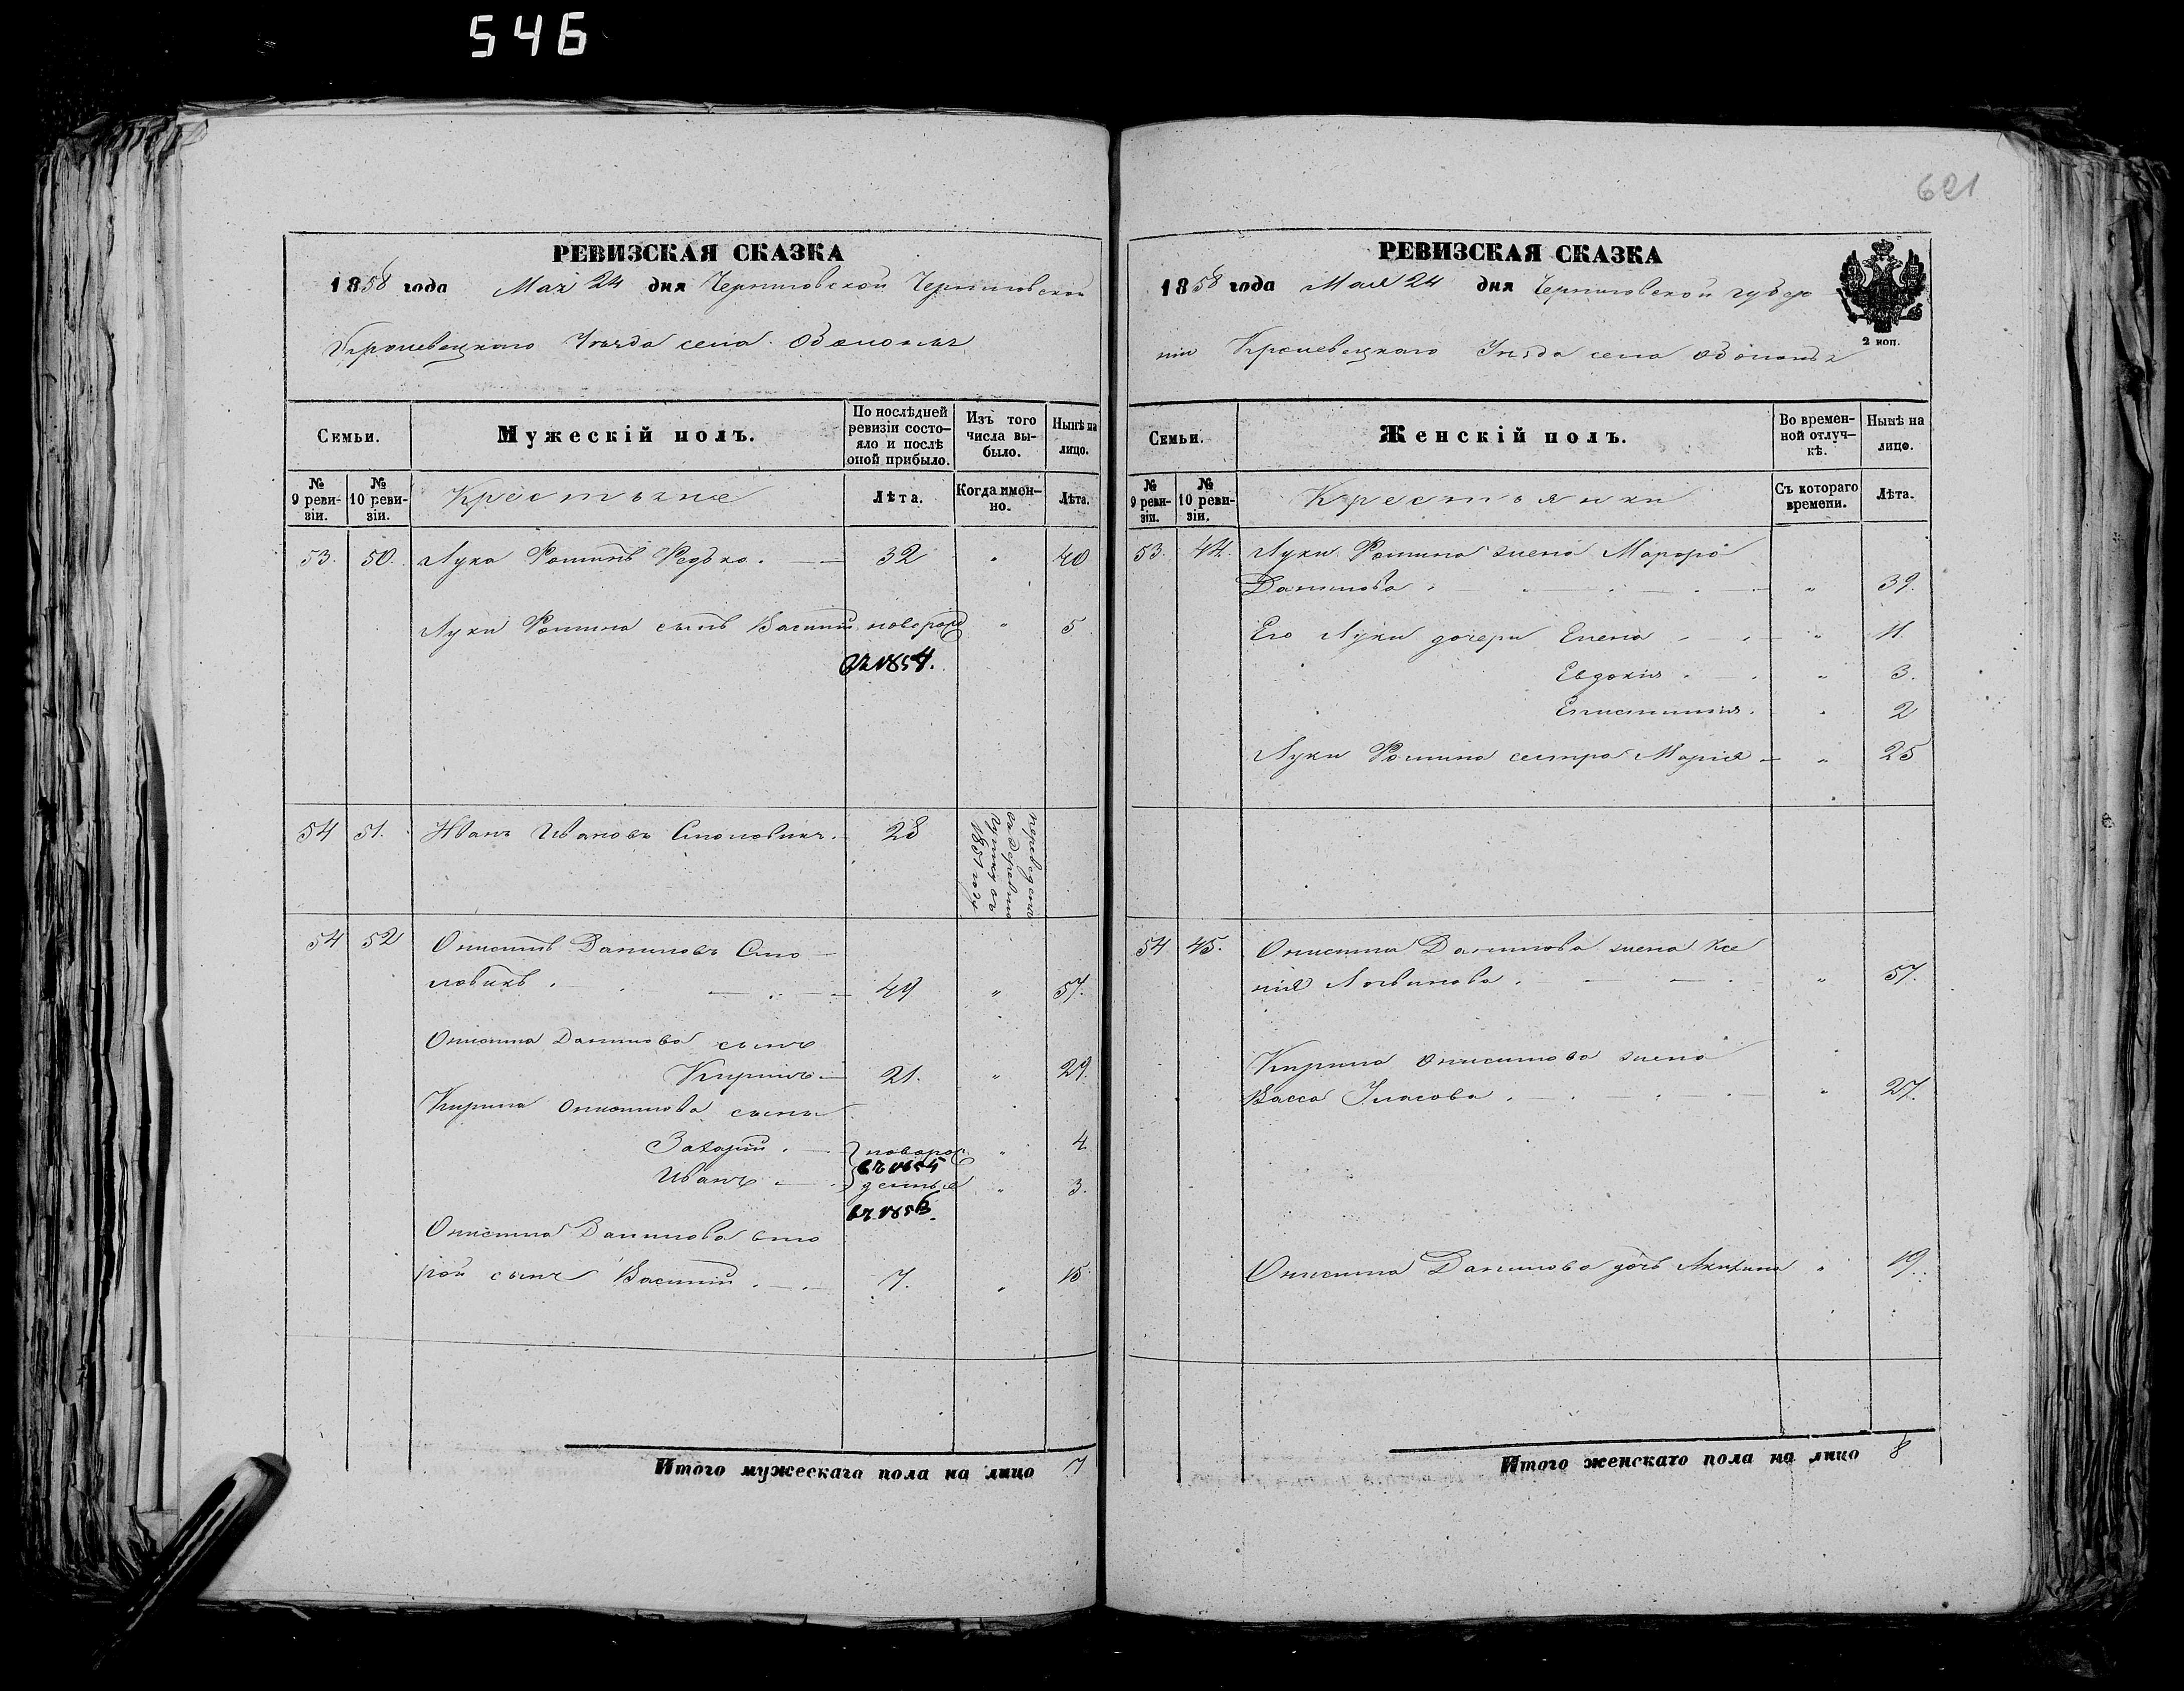 546
621
РЕВИЗСКАЯ СКАЗКА
1858 года Мая 24 дня Черниговской Черниговской
Кролевецкаго Уѣзда села
Семьи.
Мужескій полъ.
По послѣдней ревизіи состо-
яло и послѣ
оной прибыло.
Изъ того
числа вы-
было.
Нынѣ на
лицо.
№
9 реви-
зіи.
№
10 реви-
зіи.
Крестьяне
Лѣта.
Когда имен-
но.
Лѣта.
53. 50. Лука Редько. 32 " 40
Луки сынъ Василий новорожд " 5
въ 1854.
54 51. Иванъ Ивановъ Столовикъ. 28
переведенъ
въ деревню
1851 году
54 52 Онисимъ Даниловъ Сто-
ловикъ. 49 " 57.
Онисима Данилова сынъ
Кирило 21. " 29.
Кирила Онисимова сыны
Захарий. новорож " 4
въ 1854
Иванъ денные " 3.
въ 1856.
Онисима Данилова вто
рой сынъ Василий. 7. " 15.
Итого мужескаго пола на лицо 7
РЕВИЗСКАЯ СКАЗКА
1858 года Мая 24 дня Черниговской губер
ніи Кролевецкаго Уѣзда села
2 коп.
Семьи.
Женскій полъ.
Во времен-
ной отлуч-
кѣ.
Нынѣ на
лицо.
№
9 реви-
зіи.
№
10 реви-
зіи.
Крестьянки
Съ котораго
времени.
Лѣта.
53. 44. Луки жена
Данилова. " 39.
Его Луки дочери Елена " 11.
Евдокія " 3.
" 2
Луки сестра Марія " 25
54 45. Онисима Данилова жена Ксе
нія Логвинова. " 57.
Кирила Онисимова жена
Васса Уласова. " 27.
Онисима Данилова дочь Акилина " 19.
Итого женскаго пола на лицо 8